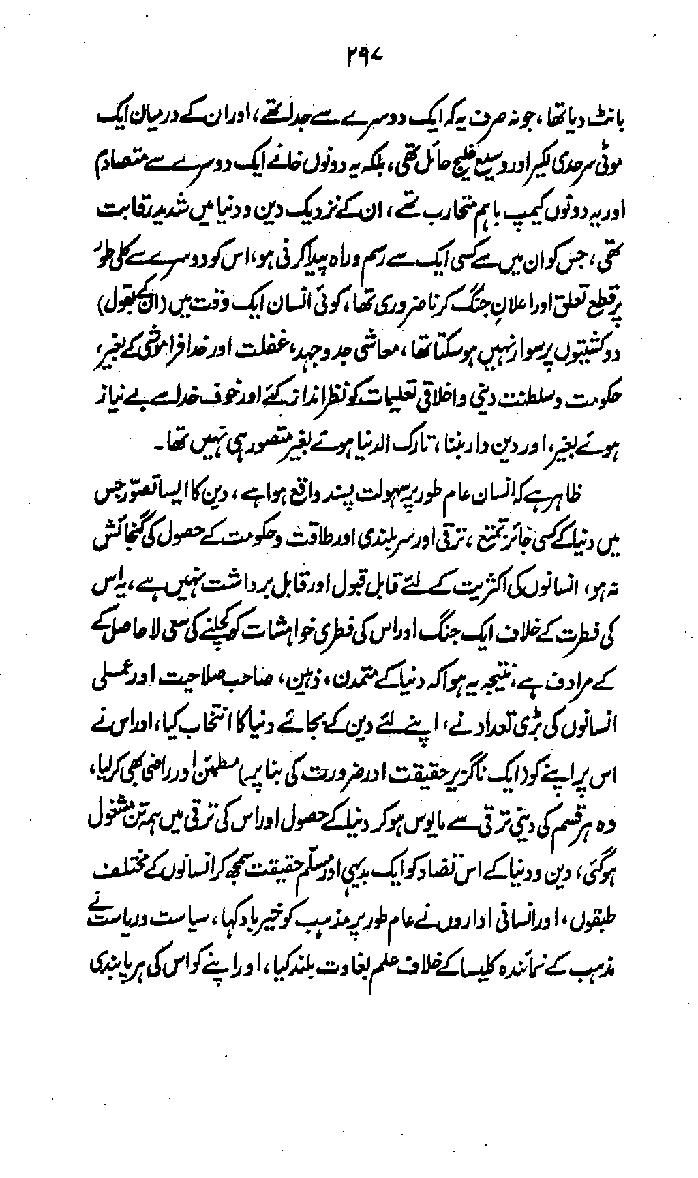 ۲۹۷
بانٹ دیا تھا، جو نہ صرف یہ کہ ایک دوسرے سے جدا تھے، اور ان کے درمیان ایک
موٹی سرحدی لکیر اور وسیع خلیج حائل تھی، بلکہ یہ دونوں خانے ایک دوسرے سے متصادم
اور یہ دونوں کیمپ باہم متحارب تھے، ان کے نزدیک دین و دنیا میں شدید رقابت
تھی، جس کو ان میں سے کسی ایک سے رسم و راہ پیدا کرنی ہو، اس کو دوسرے سے کلی طور
پر قطع تعلق اور اعلان جنگ کرنا ضروری تھا، کوئی انسان ایک وقت میں (ان کے بقول)
دو کشتیوں پر سوار نہیں ہو سکتا تھا، معاشی جدوجہد، غفلت اور خدا فراموشی کے بغیر،
حکومت و سلطنت دینی و اخلاقی تعلیمات کو نظر انداز کئے اور خوف خدا سے بے نیاز
ہوئے بغیر، اور دین دار بننا، تارک الدنیا ہوئے بغیر متصور ہی نہیں تھا۔
ظاہر ہے کہ انسان عام طور پر سہولت پسند واقع ہوا ہے، دین کا ایسا تصور جس
میں دنیا کے کسی جائز تمتع، ترقی اور سر بلندی اور طاقت و حکومت کے حصول کی گنجائش
نہ ہو، انسانوں کی اکثریت کے لئے قابل قبول اور قابل برداشت نہیں ہے، یہ اس
کی فطرت کے خلاف ایک جنگ اور اس کی فطری خواہشات کو کچلنے کی سعی لا حاصل کے
کے مرادف ہے، نتیجہ یہ ہوا کہ دنیا کے متمدن، ذہین، صاحب صلاحیت اور عملی
انسانوں کی بڑی تعداد نے، اپنے لئے دین کے بجائے دنیا کا انتخاب کیا، اور اس نے
اس پر اپنے کو (ایک ناگزیر حقیقت اور ضرورت کی بنا پر) مطمئن اور راضی بھی کر لیا،
وہ ہر قسم کی دینی ترقی سے مایوس ہو کر دنیا کے حصول اور اس کی ترقی میں ہمہ تن مشغول
ہو گئی، دین و دنیا کے اس تضاد کو ایک بدیہی اور مسلم حقیقت سمجھ کر انسانوں کے مختلف
طبقوں، اور انسانی اداروں نے عام طور پر مذہب کو خیر باد کہا، سیاست و ریاست نے
مذہب کے نمائندہ کلیسا کے خلاف علم بغاوت بلند کیا، اور اپنے کو اس کی ہر پابندی